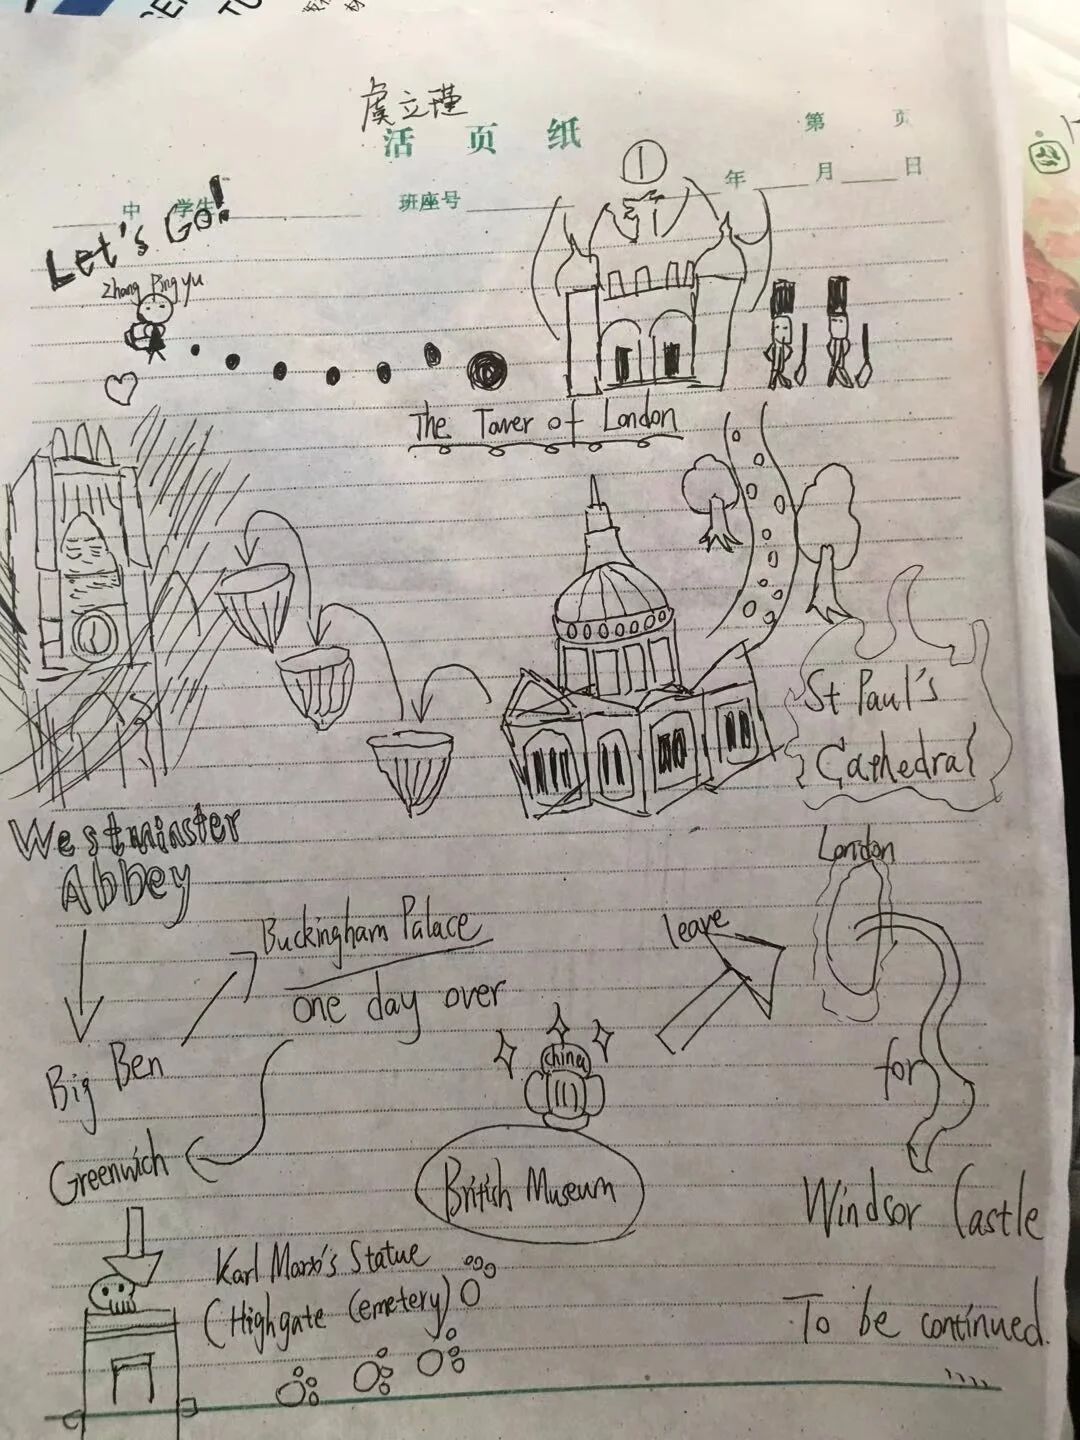 虞立瑾
活 页 纸
第 页
①
年 月 日
中 学生 班座号
Let's Go!
Zhang Pingyu
The Tower of London
St Paul's
Cathedral
Westminster
Abbey
London
Buckingham Palace
leave
one day over
china
Big Ben
for
Greenwich
British Museum
Windsor Castle
Karl Marx's Statue
(Highgate Cemetery)
To be continued.